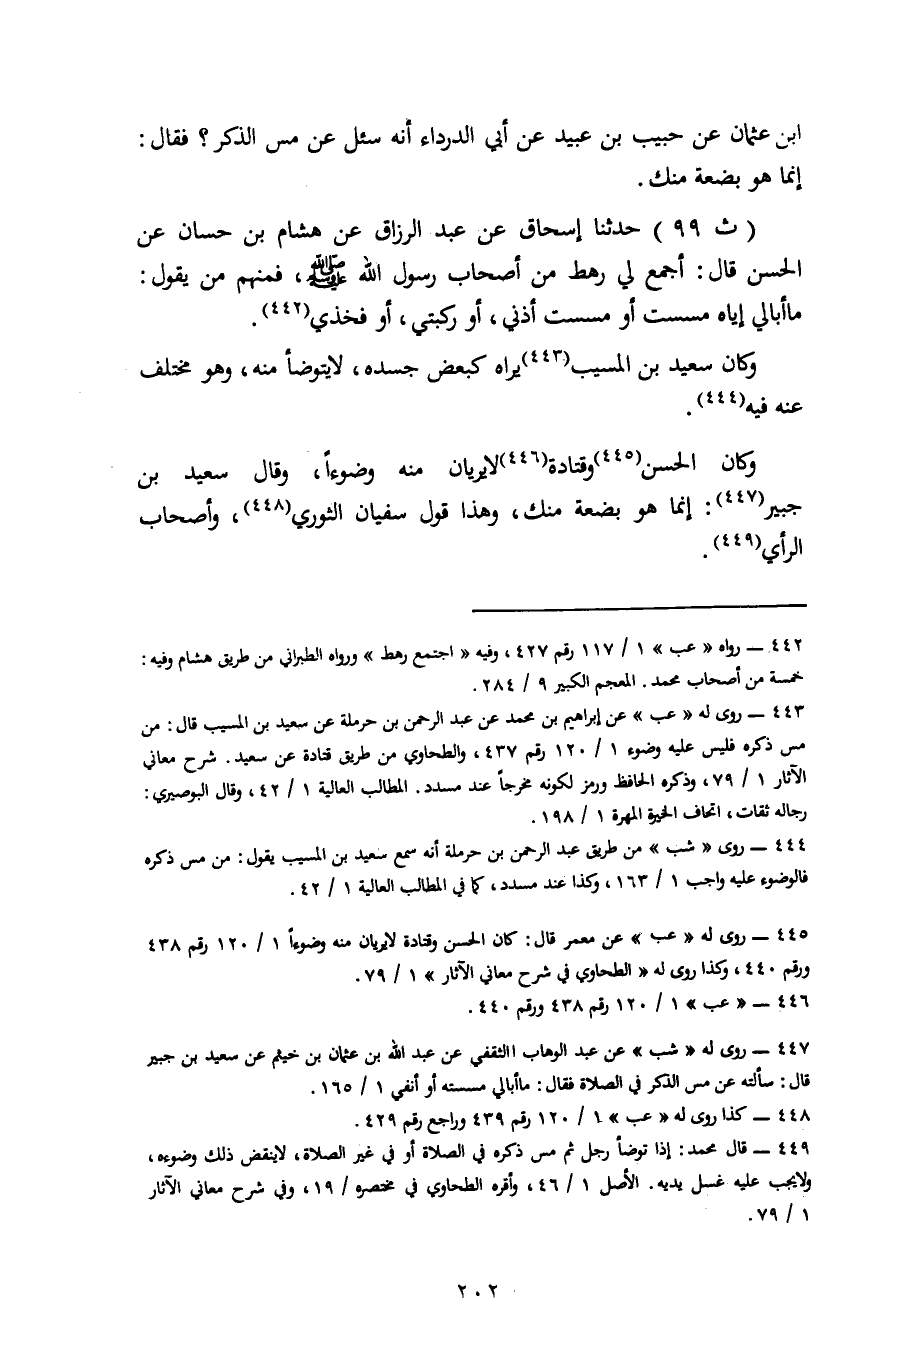 ابن عثمان عن حبيب بن عبيد عن أبي الدرداء أنه سئل عن مس الذكر ؟ فقال :
إنما هو بضعة منك .
( ث ٩٩ ) حدثنا إسحاق عن عبد الرزاق عن هشام بن حسان عن
الحسن قال : أجمع لي رهط من أصحاب رسول الله ﷺ ، فمنهم من يقول :
ماأبالي إياه مسست أو مسست أذني ، أو ركبتي ، أو فخذي(٤٤٢) .
وكان سعيد بن المسيب(٤٤٣)يراه كبعض جسده ، لايتوضأ منه ، وهو مختلف
عنه فيه(٤٤٤) .
وكان الحسن(٤٤٥)وقتادة(٤٤٦)لايريان منه وضوءاً ، وقال سعيد بن
جبير(٤٤٧) : إنما هو بضعة منك ، وهذا قول سفيان الثوري(٤٤٨) ، وأصحاب
الرأي(٤٤٩) .
٤٤٢ ــ رواه « عب » ١ / ١١٧ رقم ٤٢٧ ، وفيه « اجتمع رهط » ورواه الطبراني من طريق هشام وفيه :
خمسة من أصحاب محمد . المعجم الكبير ٩ / ٢٨٤ .
٤٤٣ ــ روى له « عب » عن إبراهيم بن محمد عن عبد الرحمن بن حرملة عن سعيد بن المسيب قال : من
مس ذكره فليس عليه وضوء ١ / ١٢٠ رقم ٤٣٧ ، والطحاوي من طريق قتادة عن سعيد . شرح معاني
الآثار ١ / ٧٩ ، وذكره الحافظ ورمز لكونه مخرجاً عند مسدد . المطالب العالية ١ / ٤٢ ، وقال البوصيري :
رجاله ثقات ، اتحاف الخيرة المهرة ١ / ١٩٨ .
٤٤٤ ــ روى « شب » من طريق عبد الرحمن بن حرملة أنه سمع سعيد بن المسيب يقول : من مس ذكره
فالوضوء عليه واجب ١ / ١٦٣ ، وكذا عند مسدد ، كما في المطالب العالية ١ / ٤٢ .
٤٤٥ ــ روى له « عب » عن معمر قال : كان الحسن وقتادة لايريان منه وضوءاً ١ / ١٢٠ رقم ٤٣٨
ورقم ٤٤٠ ، وكذا روى له « الطحاوي في شرح معاني الآثار » ١ / ٧٩ .
٤٤٦ ــ « عب » ١ / ١٢٠ رقم ٤٣٨ ورقم ٤٤٠ .
٤٤٧ ــ روى له « شب » عن عبد الوهاب االثقفي عن عبد الله بن عثمان بن خيثم عن سعيد بن جبير
قال : سألته عن مس الذكر في الصلاة فقال : ماأبالي مسسته أو أنفي ١ / ١٦٥ .
٤٤٨ ــ كذا روى له « عب » ١ / ١٢٠ رقم ٤٣٩ وراجع رقم ٤٢٩ .
٤٤٩ ــ قال محمد : إذا توضأ رجل ثم مس ذكره في الصلاة أو في غير الصلاة ، لاينقض ذلك وضوءه ،
ولايجب عليه غسل يديه . الأصل ١ / ٤٦ ، وأقره الطحاوي في مختصره / ١٩ ، وفي شرح معاني الآثار
١ / ٧٩ .
٢٠٢